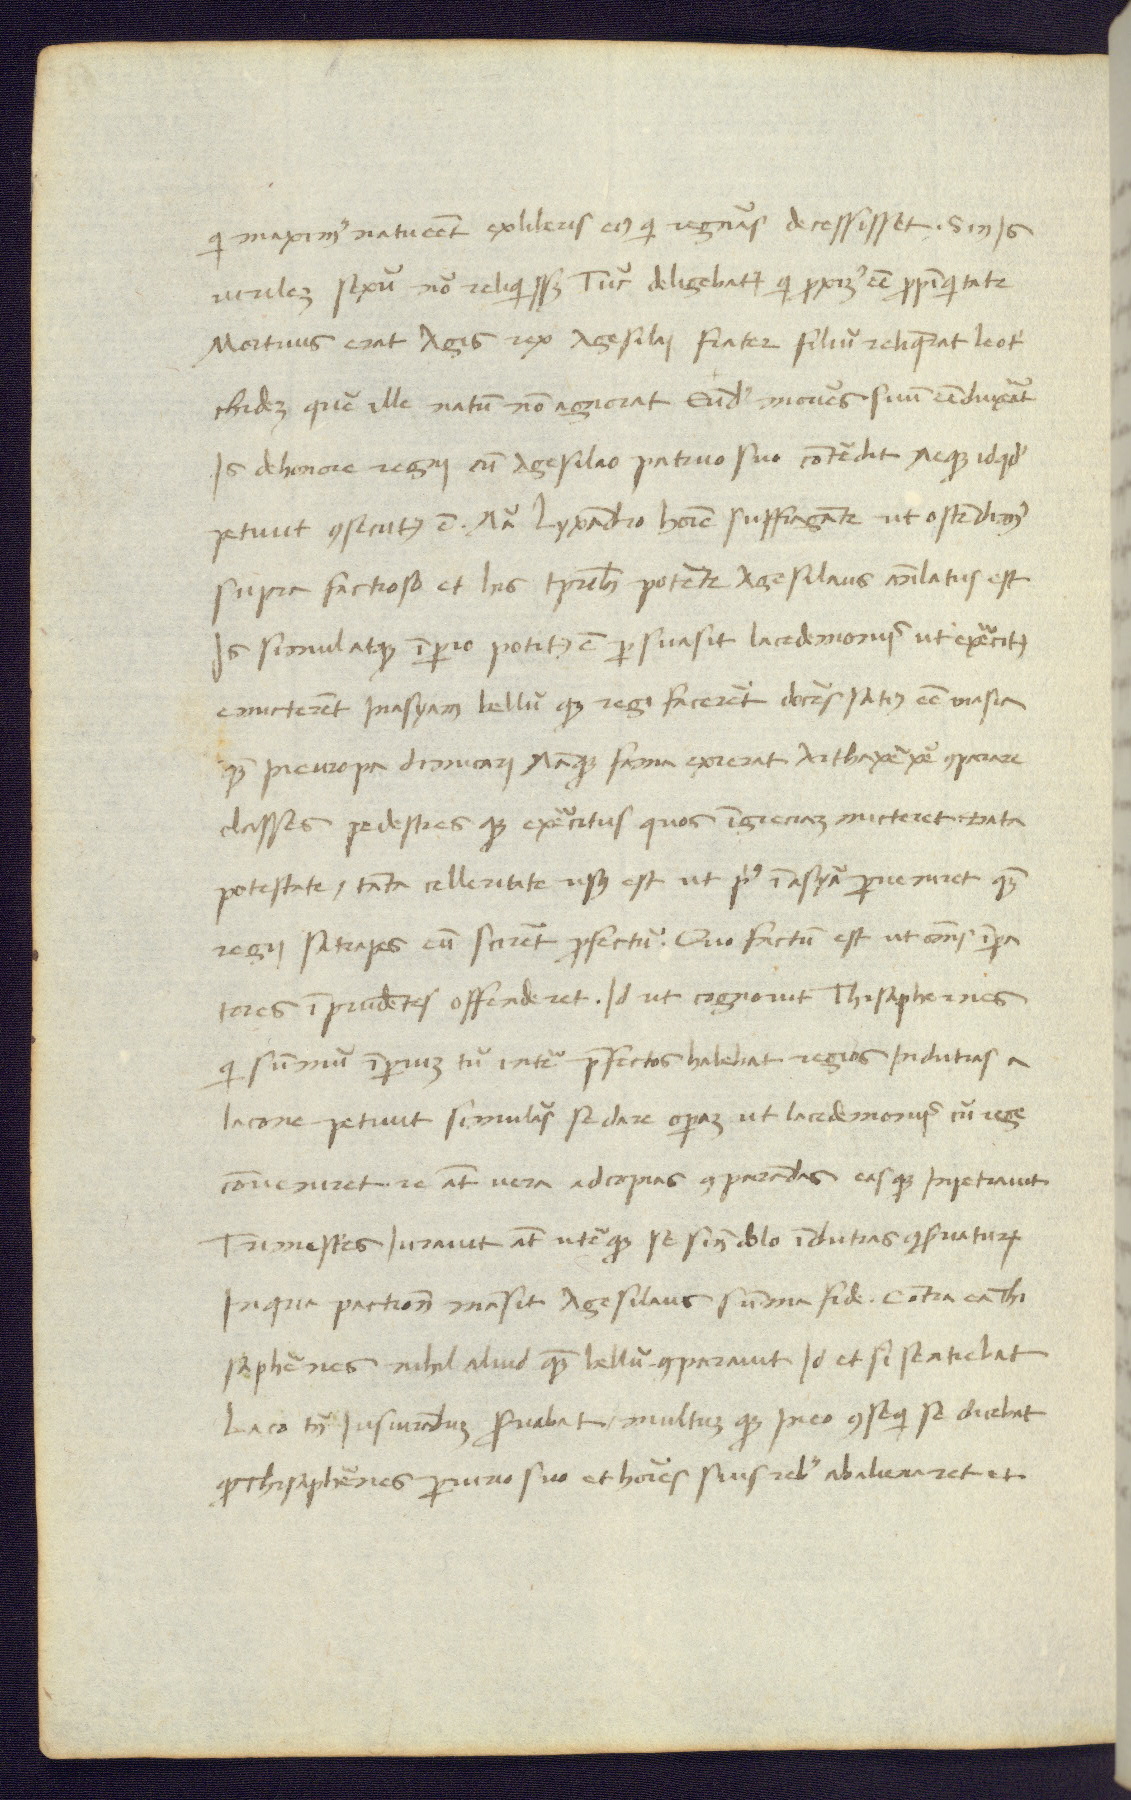 qi maxim⁹ natu eēt ex liberis eiꝰ qi regnās decessisset. Sin Is
virilez sexū nō reliqissꝫ Tūc deligebat᷑ qi prxīꝰ eēt prpīqitate
Mortuus erat Agis rex Agesilaj frater filiū reliqerat leoti
chidez quē ille natū nō agnorat Eūdē moriēs suū eē dixerāt
Is de honore regnj cū Agesilao patruo suo cōtēdit Neqꝫ id qd̓
petiuit ꝯsecutꝰ ē. Nā Lyxādro hoīe suffragāte ut ostēdimꝰ
supra factioso et his tp̄ribꝫ potēte Agesilaus ātelatus est
Is simul atqꝫ īperio potitꝰ ē persuasit lacedemonijs ut exercitꝰ
emicterēt In asyam bellū qꝫ regi facerēt docēs satiꝰ eē in asia
quā In europa dimicarj Nāqꝫ fama exierat Arthaxerxē ꝯparare
classes pedestres qꝫ exercitus quos ī greciaz micteret data
potestate / tāta celleritate usꝰ est ut priꝰ ī asyā perueniret quā
regij satrapes eū scirēt profectū. Quo factū est ut oēs īpera
tores īprudētes offenderet. Id ut cognouit Thisaphernes
qi sūmū īperiuz tū inter prefectos habebat regios Indutias a
lacone petiuit simulās se dare operaz ut lacedemonijs cū rege
cōueniret re aūt uera ad copias ꝯparādas easqꝫ Inpetrauit
Trimestres Iurauit aūt uterqꝫ se sine dolo īdutias ꝯseruaturū
In qua pactione māsit Agesilaus sūma fide. Cōtra ea Thi
saphernes nihil aliud quā bellū ꝯparauit Id et si sentiebat
Laco tn̄ Iusiurāduz seruabat / multuz qꝫ In eo ꝯseqi se dicebat
qd̓ Thisaphernes periurio suo et hoīes suis rebꝰ abalienaret et